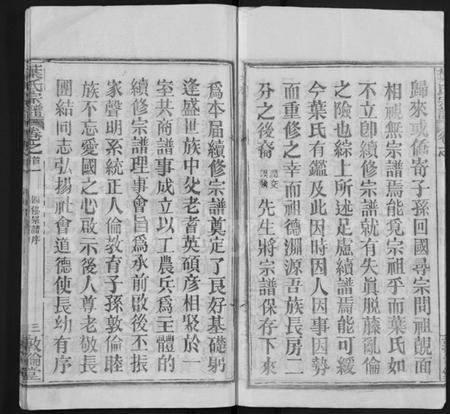 歸來或僑寄子孫回國尋宗問祖覿面
相視無宗譜焉能竟宗祖乎而葉氏如
不立即續修宗譜就有失眞脫藤亂倫
之險也綜上所述足慮續譜焉能可緩
今葉氏有鑑及此因時因人因事因勢
所貴重之幸而祖德淵源吾族長房二
房之後裔 先生將宗譜保存下來
爲本屆續修宗譜奠定了良好基礎躬
逢盛世族中父老者英碩彥相聚於一
室共商譜事成立以工農兵爲主體的
續修宗譜理事會旨爲承前啟後丕振
家聲明系統正人倫教育子孫敦倫睦
族不忘愛國之心啟示後人尊老敬長
團結同志弘揚社會道德使長幼有序
葉氏宗譜
卷之首一
四修宗譜序
三
敦倫堂